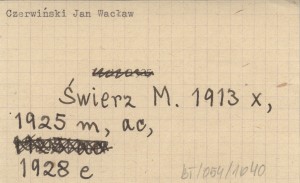 Czerwiński Jan Wacław
Świerz M. 1913 x,
1925 m, ac,
1928 e
BT/004/1040